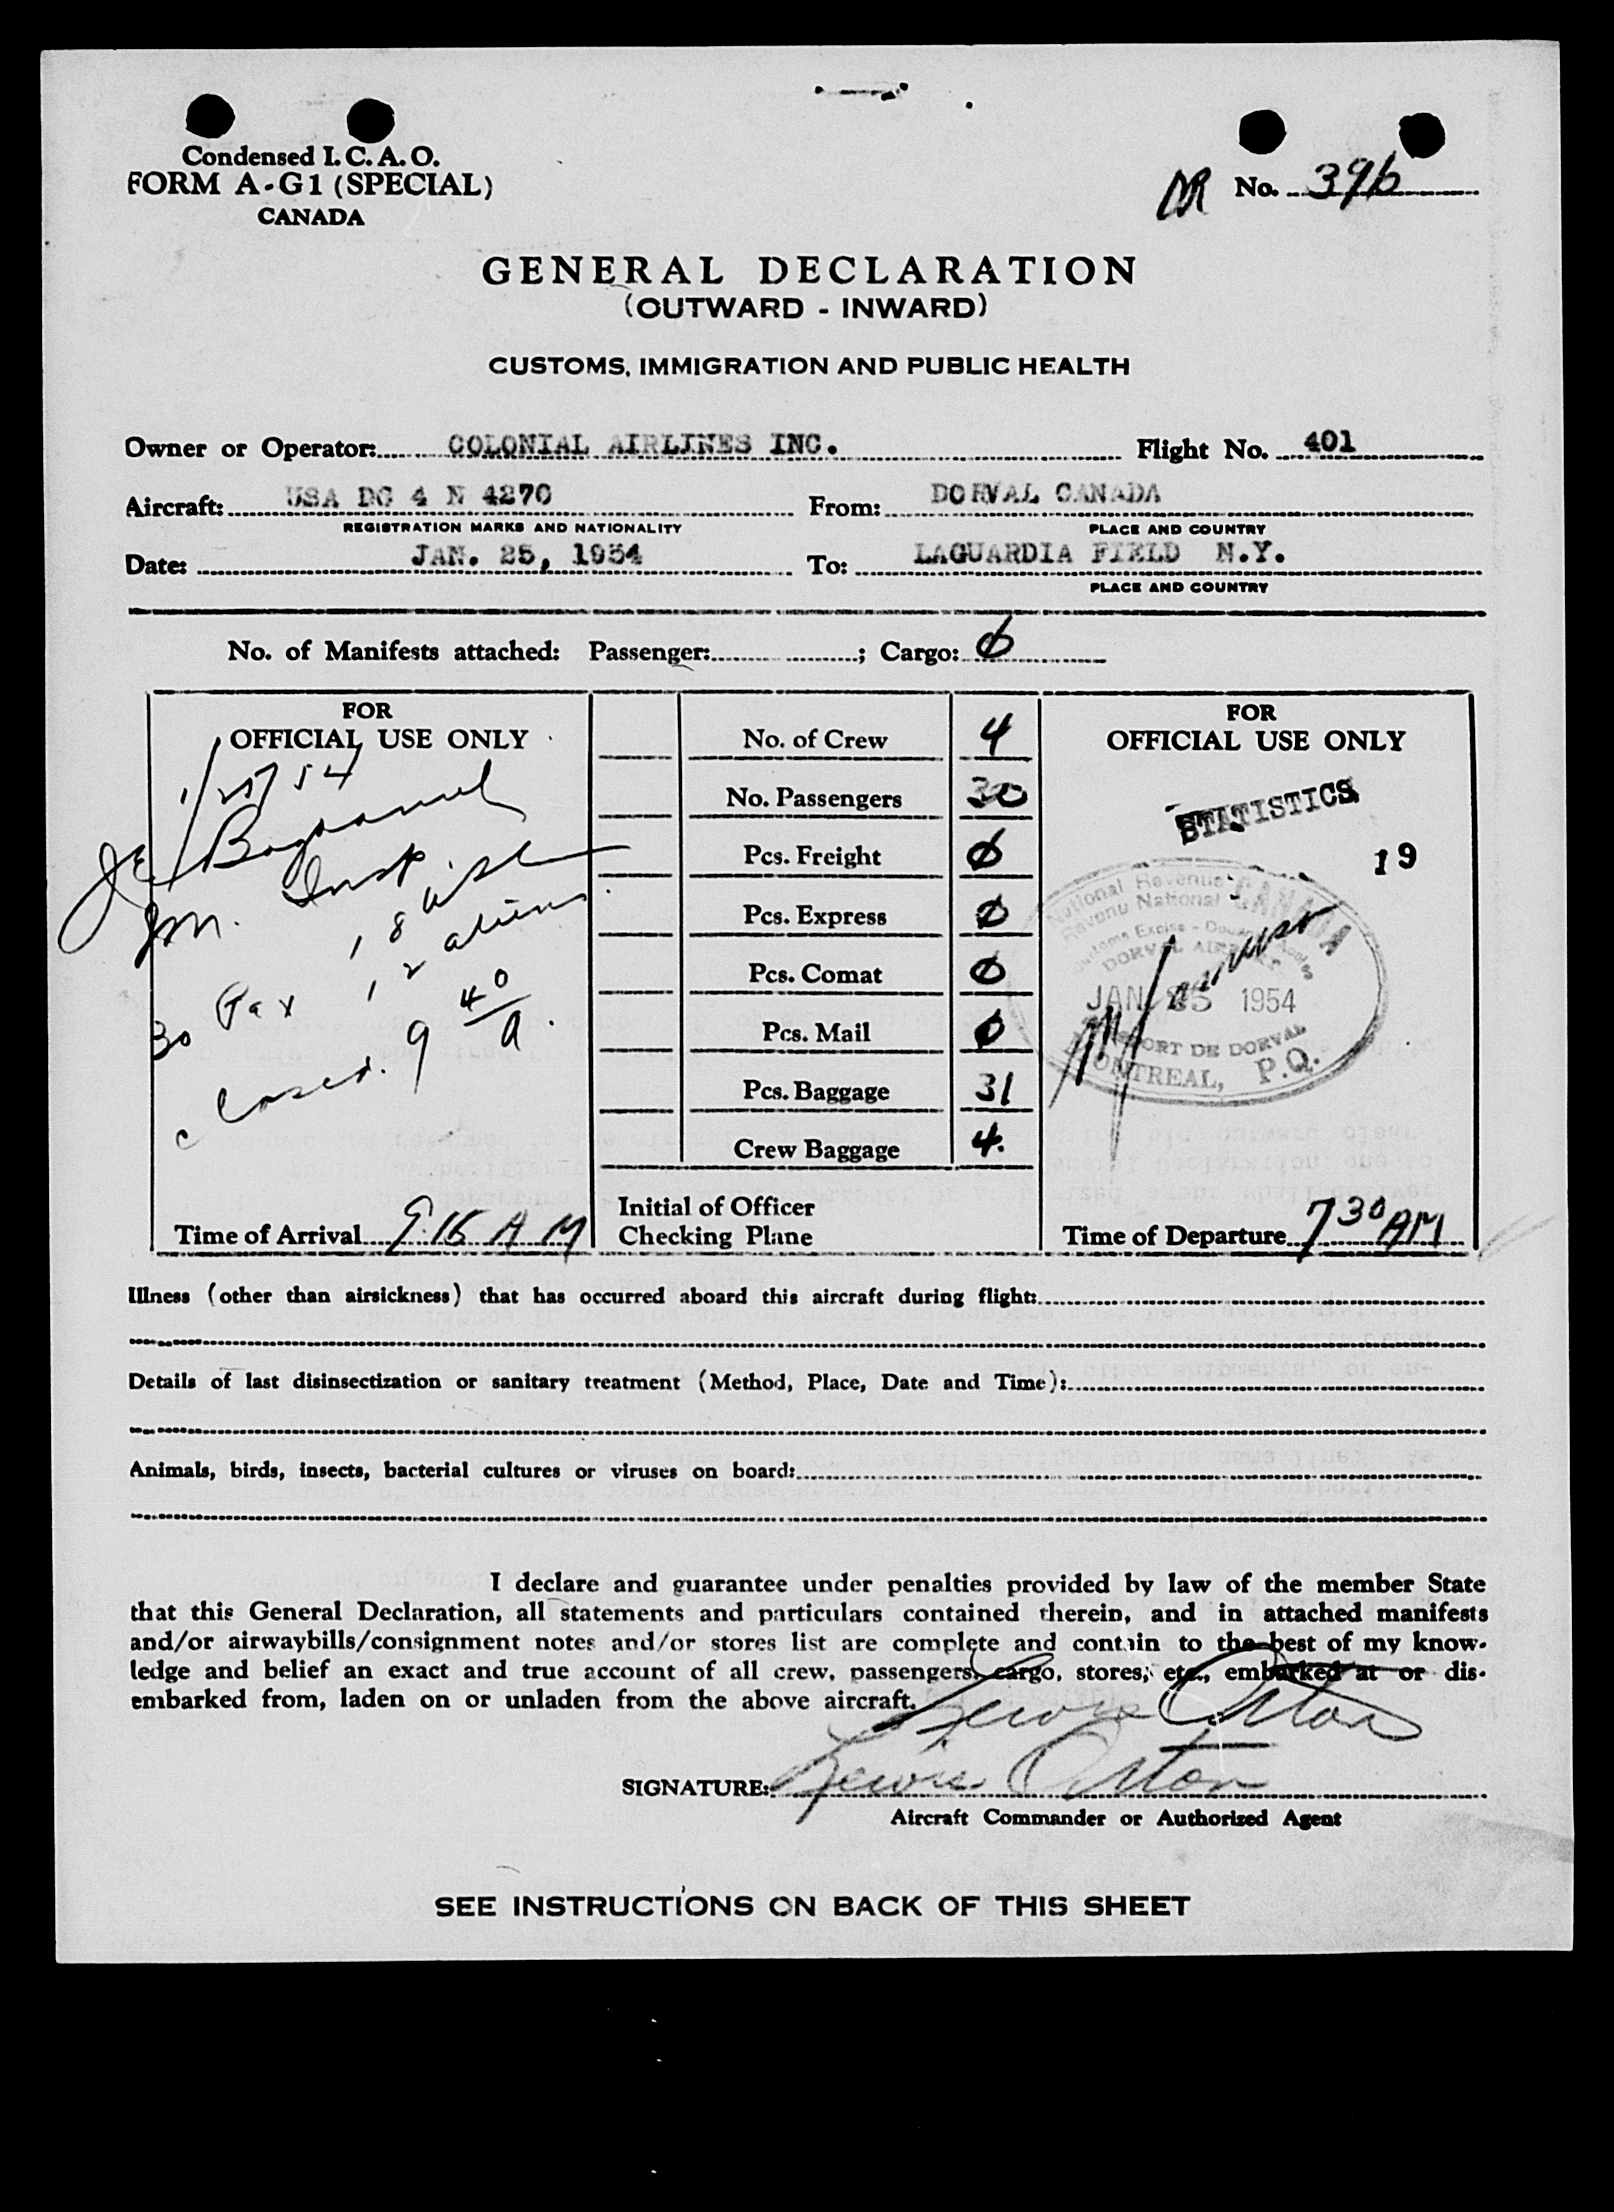 Condensed I. C. A. O.
FORM A-G1 (SPECIAL)
CANADA
No. 396
GENERAL DECLARATION
(OUTWARD - INWARD)
CUSTOMS, IMMIGRATION AND PUBLIC HEALTH
Owner or Operator: COLONIAL AIRLINES INC. Flight No. 401
Aircraft: USA DC 4 N 4270 From: DORVAL CANADA
REGISTRATION MARKS AND NATIONALITY PLACE AND COUNTRY
Date: JAN. 25, 1954 To: LAGUARDIA FIELD N.Y.
PLACE AND COUNTRY
No. of Manifests attached: Passenger: ; Cargo: 0
FOR
OFFICIAL USE ONLY
1/25/54
Insp
18 USC
12 aliens
30 Pax
closed. 9 40/A.
Time of Arrival 9.15 AM
No. of Crew 4
No. Passengers 30
Pcs. Freight 0
Pcs. Express 0
Pcs. Comat 0
Pcs. Mail 0
Pcs. Baggage 31
Crew Baggage 4.
Initial of Officer
Checking Plane
FOR
OFFICIAL USE ONLY
STATISTICS
19
National Revenue CANADA
Revenu National
Customs Excise - Douanes Accises
DORVAL AIRPORT
JAN 25 1954
AEROPORT DE DORVAL
MONTREAL, P.Q.
Time of Departure 7 30 AM
Illness (other than airsickness) that has occurred aboard this aircraft during flight:
Details of last disinsectization or sanitary treatment (Method, Place, Date and Time):
Animals, birds, insects, bacterial cultures or viruses on board:
I declare and guarantee under penalties provided by law of the member State
that this General Declaration, all statements and particulars contained therein, and in attached manifests
and/or airwaybills/consignment notes and/or stores list are complete and contain to the best of my know-
ledge and belief an exact and true account of all crew, passengers, cargo, stores, etc., embarked at or dis-
embarked from, laden on or unladen from the above aircraft.
Lewis Orton
SIGNATURE: Lewis Orton
Aircraft Commander or Authorized Agent
SEE INSTRUCTIONS ON BACK OF THIS SHEET